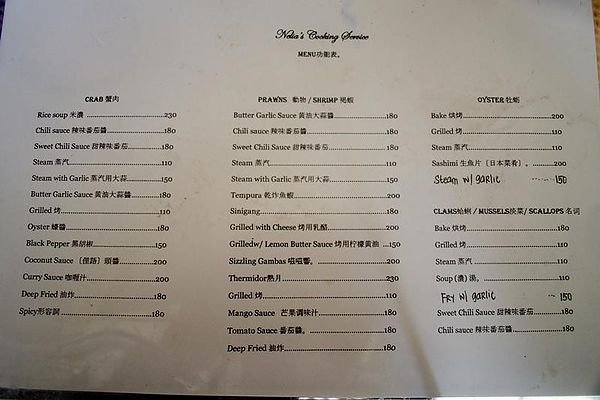 Nelia's Cooking Service
MENU功能表。
CRAB 蟹肉
Rice soup 米濃 230
Chili sauce 辣味番茄醬 180
Sweet Chili Sauce 甜辣味番茄 180
Steam 蒸汽 110
Steam with Garlic 蒸汽用大蒜 150
Butter Garlic Sauce 黄油大蒜醬 180
Grilled 烤 110
Oyster 蠔醬 180
Black Pepper 黑胡椒 150
Coconut Sauce 〔俚語〕頭醬 200
Curry Sauce 咖喱汁 200
Deep Fried 油炸 180
Spicy形容詞 180
PRAWNS 動物 / SHRIMP 褐蝦
Butter Garlic Sauce 黄油大蒜醬 180
Chili sauce 辣味番茄醬 180
Sweet Chili Sauce 甜辣味番茄 180
Steam 蒸汽 110
Steam with Garlic 蒸汽用大蒜 150
Tempura 乾炸魚蝦 200
Sinigang 180
Grilled with Cheese 烤用乳酪 200
Grilledw/ Lemon Butter Sauce 烤用柠檬黄油 150
Sizzling Gambas 嗞嗞響。 200
Thermidor熱月 230
Grilled 烤 110
Mango Sauce 芒果调味汁 180
Tomato Sauce 番茄醬。 180
Deep Fried 油炸 180
OYSTER 牡蛎
Bake 烘烤 200
Grilled 烤 110
Steam 蒸汽 110
Sashimi 生魚片〔日本菜肴〕。 200
Steam w/ garlic 150
CLAMS蛤蜊 / MUSSELS淡菜/ SCALLOPS 名词
Bake 烘烤 180
Grilled 烤 110
Steam 蒸汽 110
Soup (濃) 湯。 110
Fry w/ garlic 150
Sweet Chili Sauce 甜辣味番茄 180
Chili sauce 辣味番茄醬 180